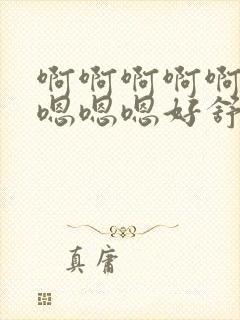 啊啊啊啊啊
嗯嗯嗯好舒
真庸